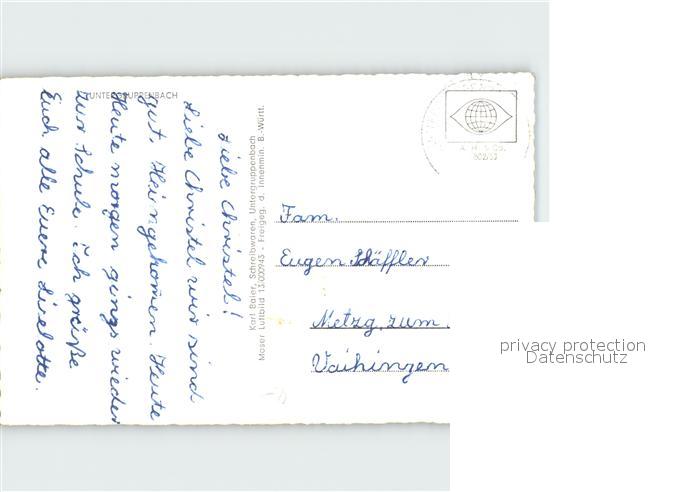 UNTERGRUPPENBACH
Liebe Christel!
Liebe Christel wir sind
gut. Heimgekomen. Heute
Heute morgen gings wieder
zur Schule. Ich grüße
Euch alle Eure Liselotte.
Karl Baier, Schreibwaren, Untergruppenbach
Moser Luftbild 13/000945 - Freigeg. d. Innenmin. B.-Württ.
Fam.
Eugen Schäffler
Metzg. zum.
Vaihingen
privacy protection
Datenschutz